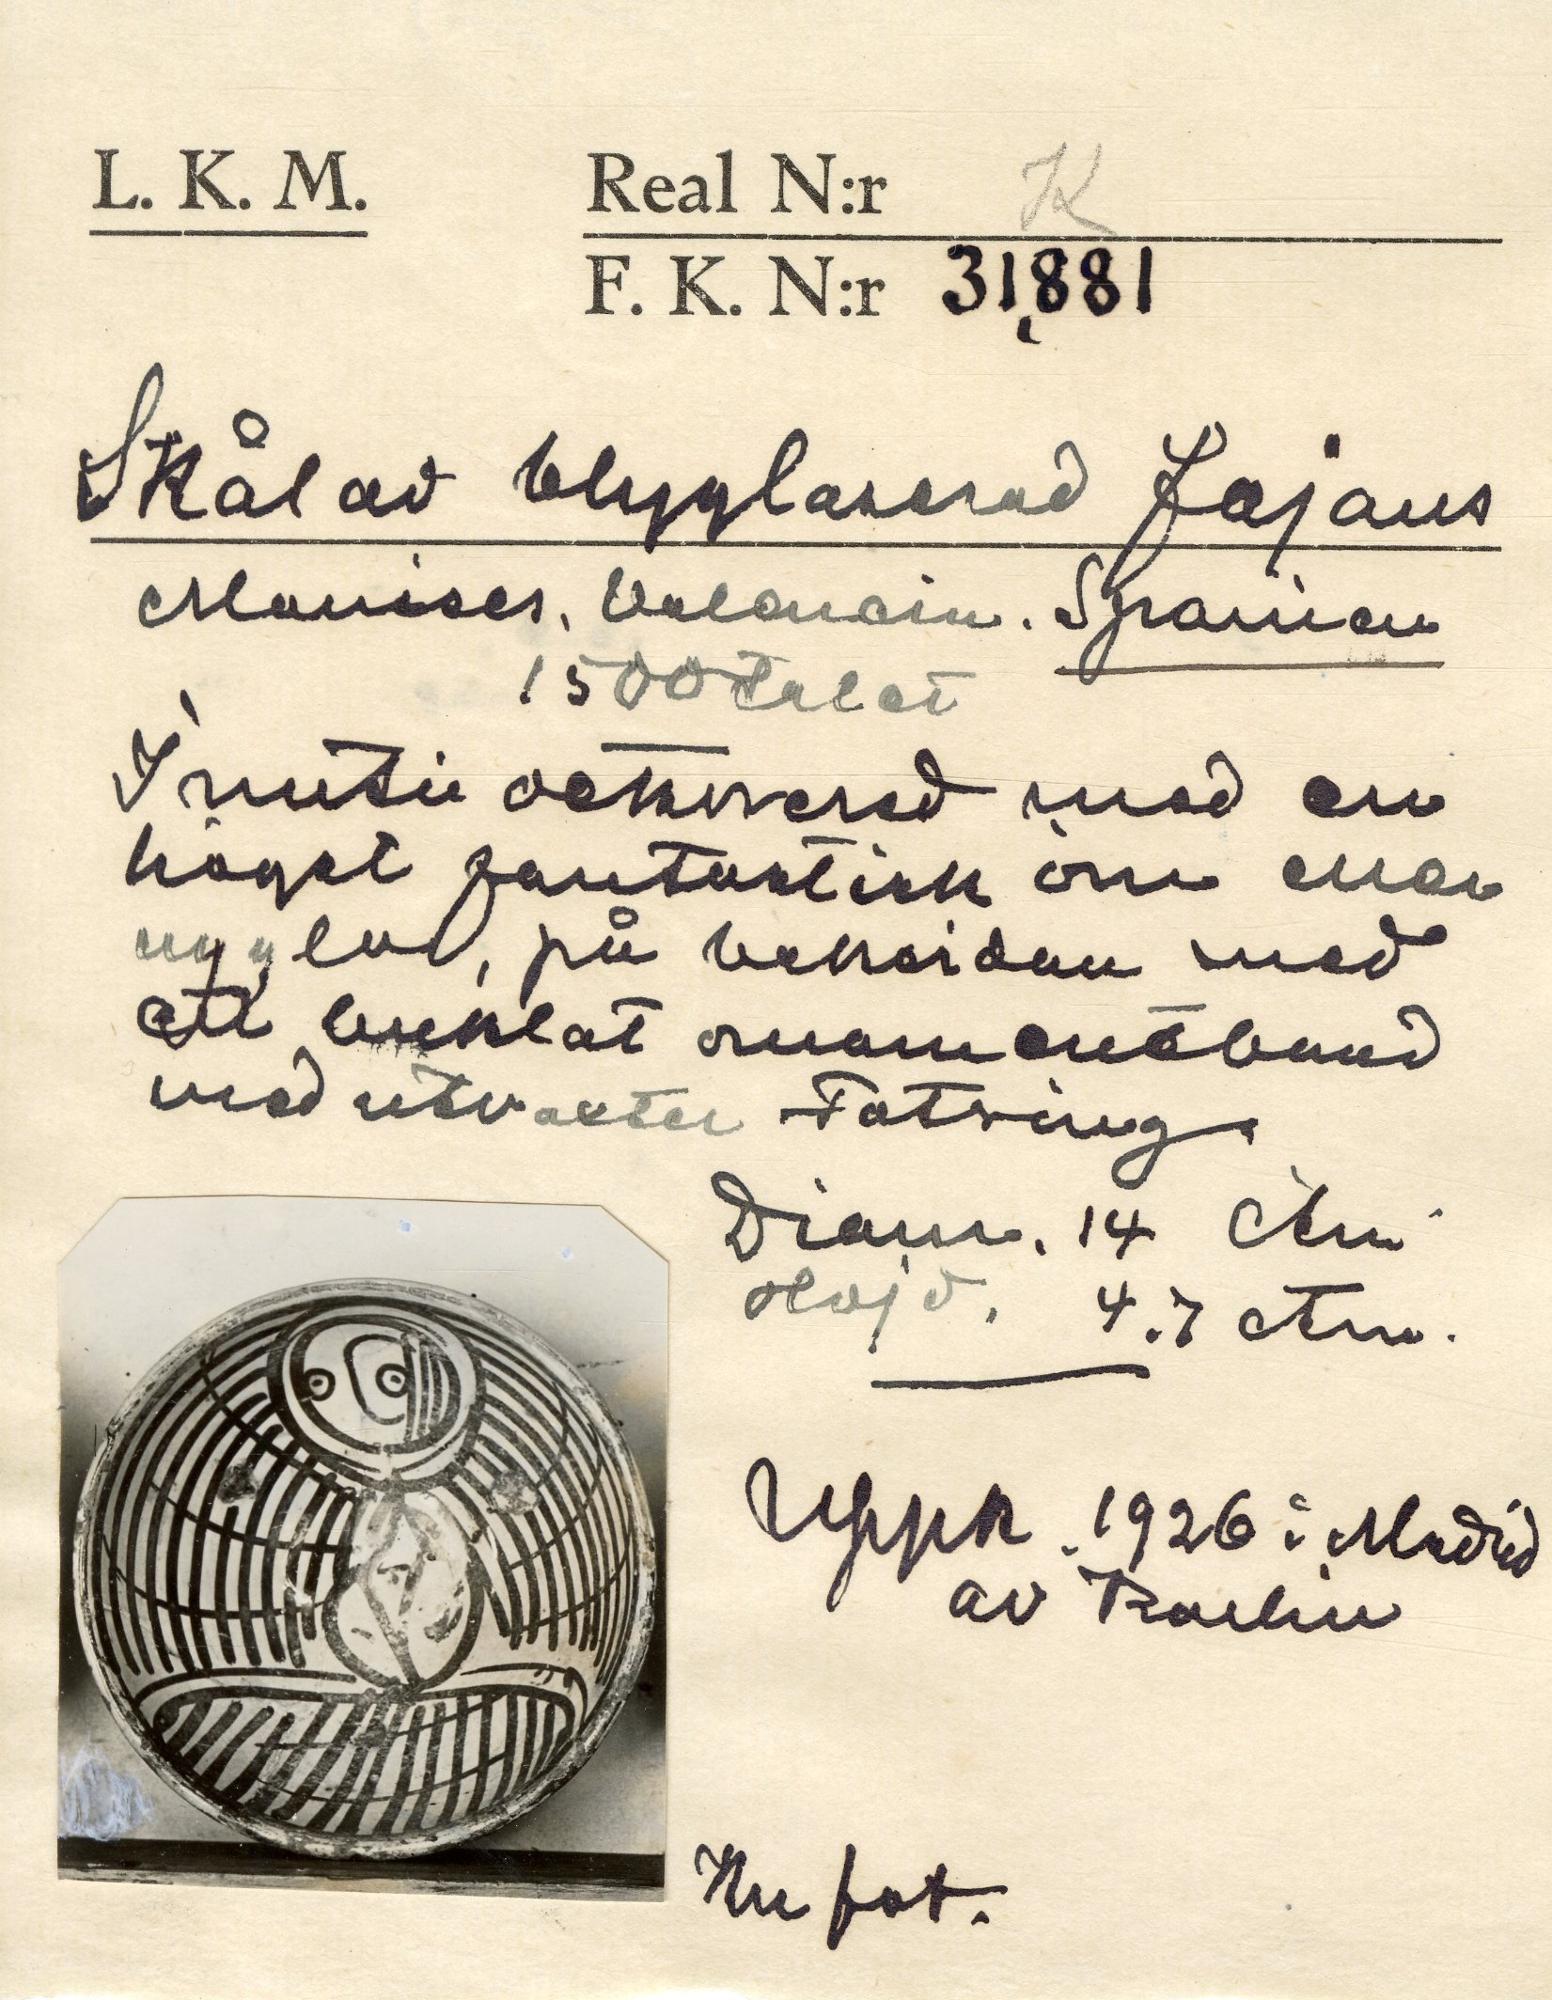 L. K. M. Real N:r K
F. K. N:r 31,881
Skål av blyglaserad Fajans
Manises, Valencia. Spanien
1500talet
Inuti dekorerad med en
högst fantastisk örn eller
uggla, på baksidan med
ett enklat ornamentband
med utsvakter Fotring.
Diam. 14 Ctm.
Höjd. 4.7 ctm.
Uppk. 1926 i Madrid
av
Nu fot.